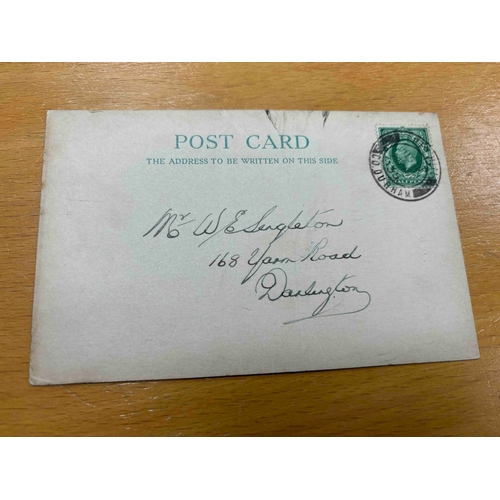 POST CARD
THE ADDRESS TO BE WRITTEN ON THIS SIDE.
Mr W E Singleton
168 Yarm Road
Darlington